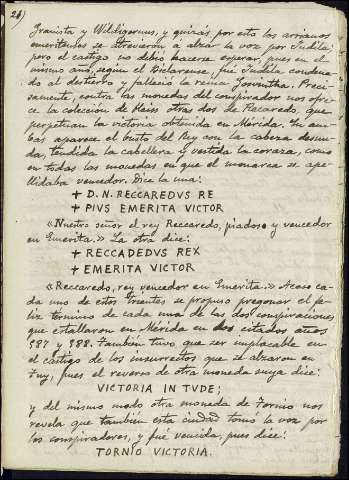 28)
Granista y Wildigernus, y quizás por esto los arrianos
emeritenses se atrevieron a alzar la voz por Judila;
pero el castigo no debió hacerse esperar, pues en el
mismo año, según el Biclarense, fué Judila condena-
do al destierro y falleció la reina Goswintha. Preci-
samente, contra las monedas del conspirador nos ofre-
ce la colección de Heiss otras dos de Recaredo, que
perpetúan la victoria obtenida en Mérida. En am-
bas aparece el busto del Rey con la cabeza desnu-
da, tendida la cabellera y vestida la coraza, como
en todas las monedas en que el monarca se ape-
llidaba vencedor. Dice la una:
+ D. N. RECCAREDVS RE
+ PIVS EMERITA VICTOR
«Nuestro señor el rey Reccaredo, piadoso y vencedor
en Emerita.» La otra dice:
+ RECCADEDVS REX
+ EMERITA VICTOR
«Reccaredo, rey vencedor en Emerita.» Acaso ca-
da uno de estos trientes se propuso pregonar el fe-
liz término de cada una de las dos conspiraciones
que estallaron en Mérida en los citados años
587 y 588. También tuvo que ser implacable en
el castigo de los insurrectos que se alzaron en
Tuy, pues el reverso de otra moneda suya dice:
VICTORIA IN TVDE;
y del mismo modo otra moneda de Tornio nos
revela que también esta ciudad tomó la voz por
los conspiradores, y fué vencida, pues dice:
TORNIO VICTORIA.